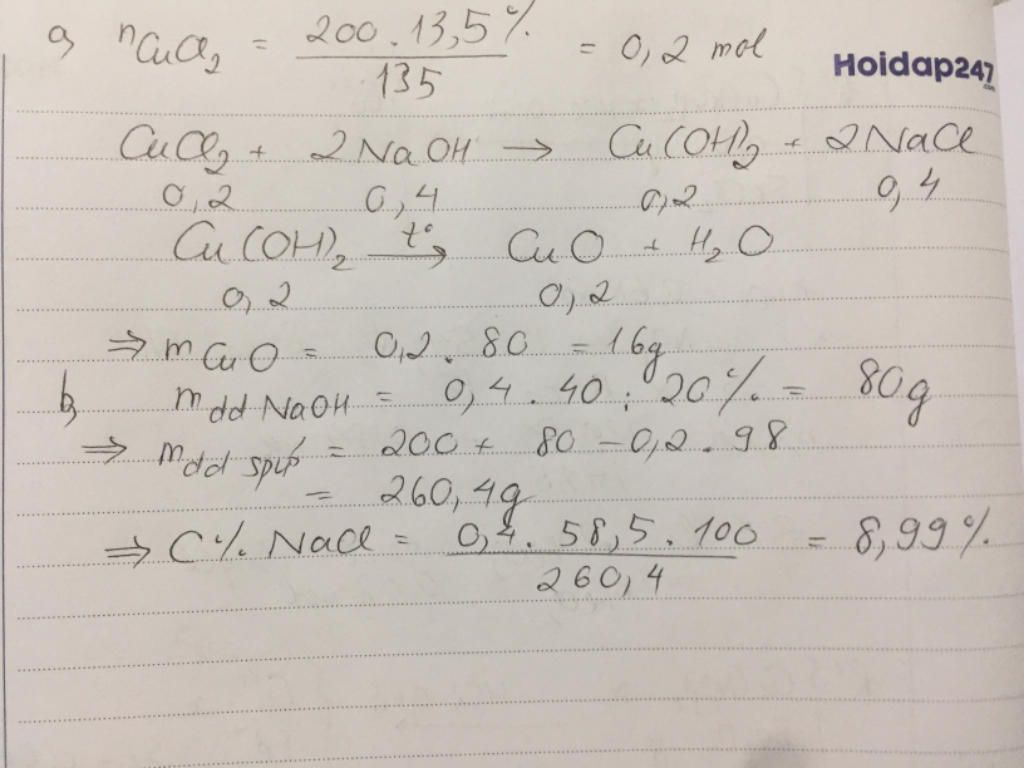 a, nCuCl₂ = 200.13,5% / 135 = 0,2 mol
Hoidap247.com
CuCl₂ + 2NaOH → Cu(OH)₂ + 2NaCl
0,2 0,4 0,2 0,4
Cu(OH)₂ t° → CuO + H₂O
0,2 0,2
⇒ mCuO = 0,2.80 = 16g
b, mdd NaOH = 0,4.40 : 20% = 80g
⇒ mdd spư = 200 + 80 - 0,2.98
= 260,4g
⇒ C% NaCl = 0,4.58,5.100 / 260,4 = 8,99%